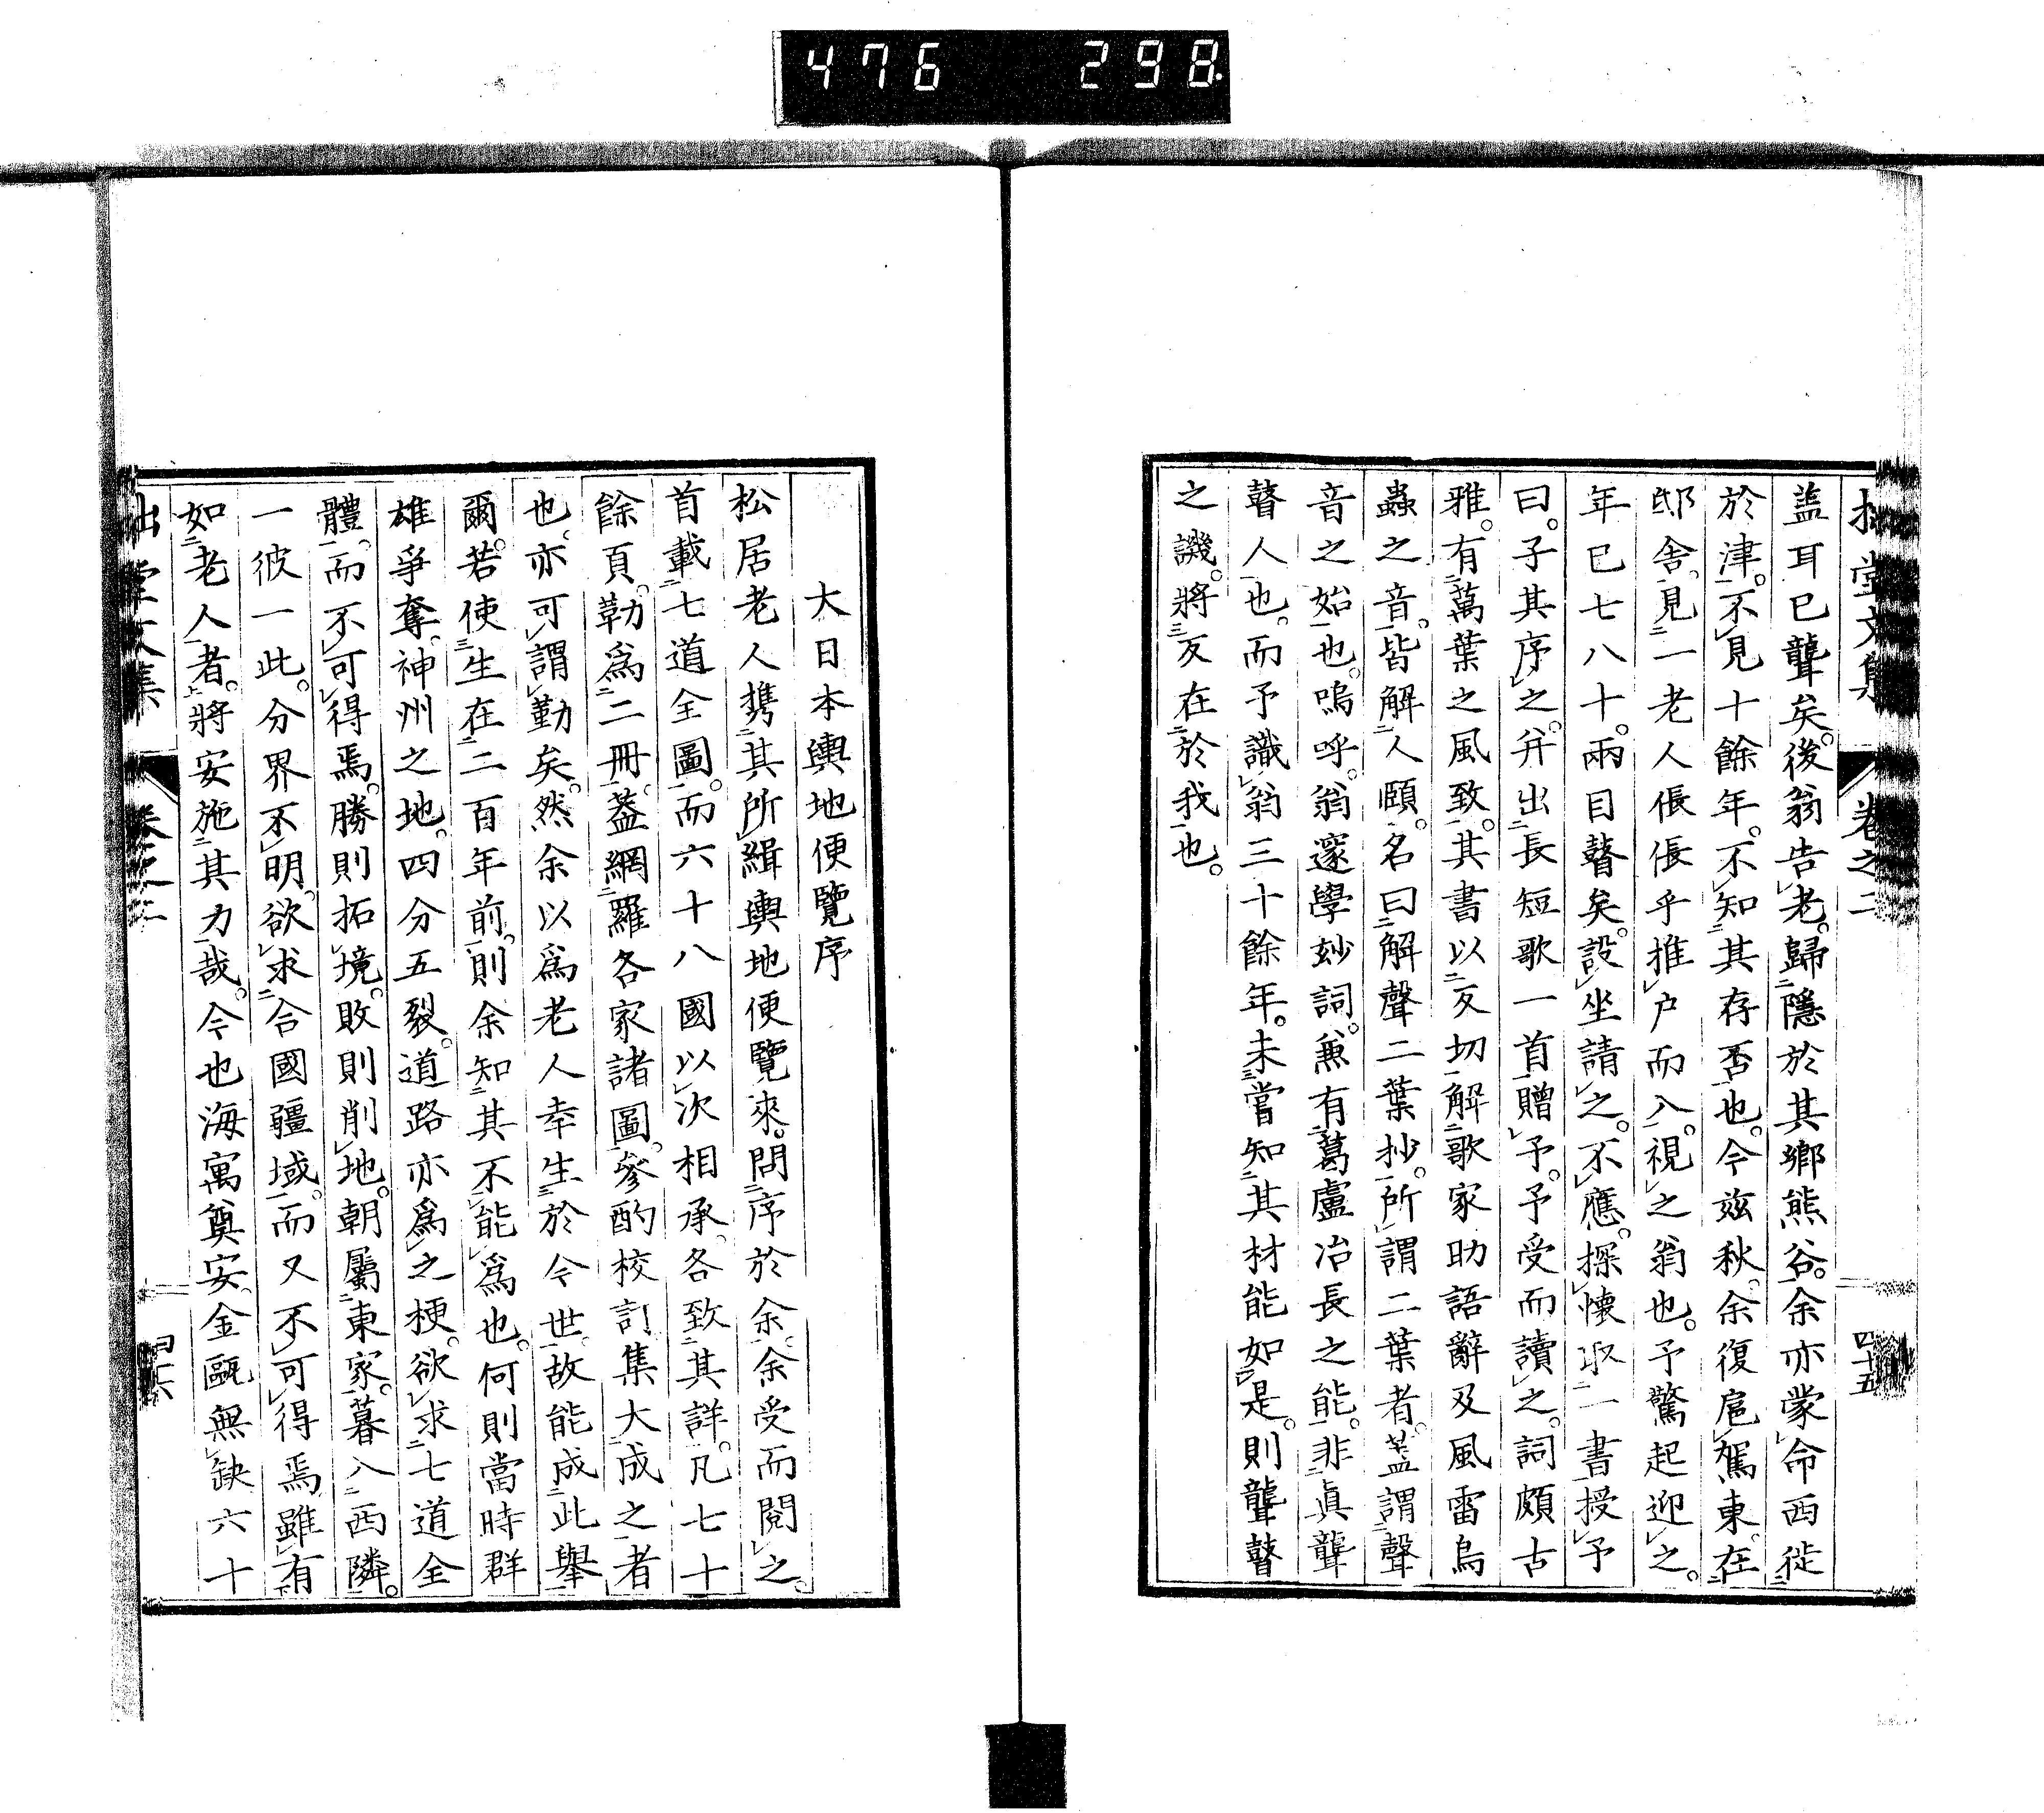 476 298
拙堂文集 卷之二 四十五
盖耳已聾矣。後翁告老。歸隱於其鄉熊谷。余亦蒙命西徙
於津。不見十餘年。不知其存否也。今玆秋。余復扈駕東。在
邸舍。見一老人倀倀乎推户而入。視之翁也。予驚起迎之。
年已七八十。兩目瞽矣。設坐請之。不應。探懷取一書授予
曰。子其序之。并出長短歌一首贈予。予受而讀之。詞頗古
雅。有萬葉之風致。其書以反切解歌家助語辭及風雷鳥
蟲之音。皆解人頤。名曰解聲二葉抄。所謂二葉者。盖謂聲
音之始也。嗚呼。翁邃學玅詞。兼有葛盧冶長之能。非眞聾
瞽人也。而予識翁三十餘年。未嘗知其材能如是。則聾瞽
之譏。將反在於我也。
大日本輿地便覽序
松居老人携其所緝輿地便覽來。問序於余。余受而閲之。
首載七道全圖。而六十八國以次相承。各致其詳。凡七十
餘頁。勒爲二冊。葢網羅各家諸圖。參酌校訂集大成之者
也。亦可謂勤矣。然余以爲老人幸生於今世。故能成此舉
爾。若使生在二百年前。則余知其不能爲也。何則當時群
雄爭奪。神州之地。四分五裂。道路亦爲之梗。欲求七道全
體。而不可得焉。勝則拓境。敗則削地。朝屬東家。暮入西隣。
一彼一此。分界不明。欲求合國疆域。而又不可得焉雖有
如老人者。將安施其力哉。今也海寓奠安。金甌無缺六十
拙堂文集 卷之二 四十六